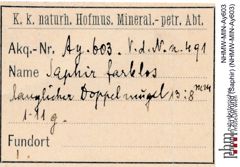 K. k. naturh. Hofmus. Mineral.-petr. Abt.
Akq.-Nr. Ay. 603. V. d. N. a. 491
Name Saphir farblos
länglicher Doppelmugel 13:8 mm
1·11 g.
Fundort
NHMW-MIN-Ay603
(Saphir) (NHMW-MIN-Ay603)
nhm